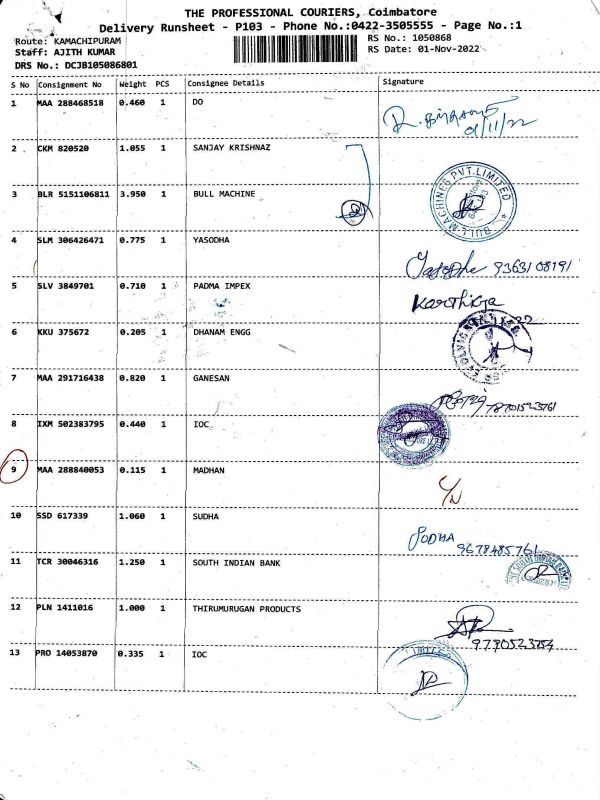 THE PROFESSIONAL COURIERS, Coimbatore
Delivery Runsheet - P103 - Phone No.:0422-3505555 - Page No.:1
Route: KAMACHIPURAM
RS No.: 1050868
Staff: AJITH KUMAR
RS Date: 01-Nov-2022
DRS No.: DCJB105086801
S No Consignment No Weight PCS Consignee Details Signature
1 MAA 288468518 0.460 1 DO
01/11/22
2 CKM 820520 1.055 1 SANJAY KRISHNAZ
3 BLR 5151106811 3.950 1 BULL MACHINE
BULL MACHINES PVT.LIMITED
4 SLM 306426471 0.775 1 YASODHA
Yasodha 9363108191
5 SLV 3849701 0.710 1 PADMA IMPEX
Karthiga
6 KKU 375672 0.205 1 DHANAM ENGG
7 MAA 291716438 0.820 1 GANESAN
8 IXM 502383795 0.440 1 IOC
9 MAA 288840053 0.115 1 MADHAN
10 SSD 617339 1.060 1 SUDHA
SODHA
11 TCR 30046316 1.250 1 SOUTH INDIAN BANK
12 PLN 1411016 1.000 1 THIRUMURUGAN PRODUCTS
13 PRO 14053870 0.335 1 IOC